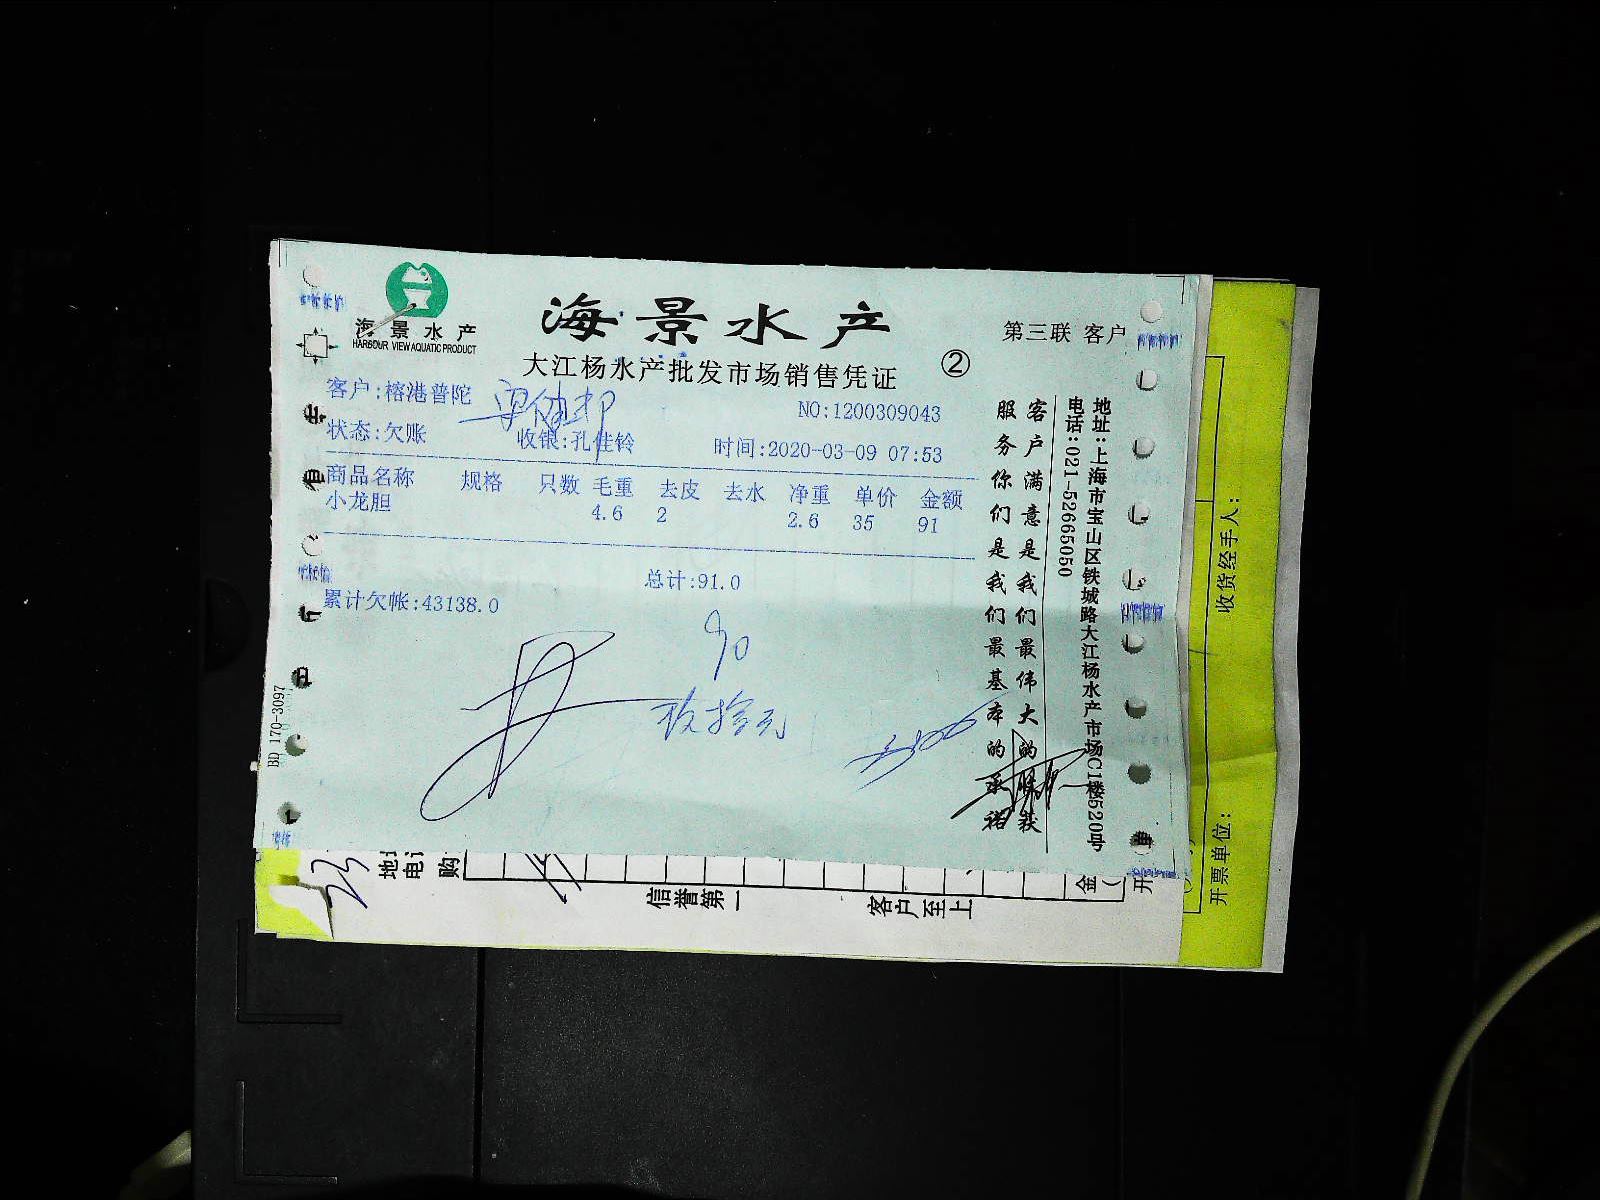 海景水产
HARBOUR VIEW AQUATIC PRODUCT
海景水产
大江杨水产批发市场销售凭证
②
第三联 客户
客户:榕港普陀
NO:1200309043
状态:欠账 收银:孔佳铃 时间:2020-03-09 07:53
商品名称 规格 只数 毛重 去皮 去水 净重 单价 金额
小龙胆 4.6 2 2.6 35 91
总计:91.0
累计欠帐:43138.0
90
玖拾元
客户满意是我们最伟大的收获
服务你们是我们最基本的承诺
地址:上海市宝山区铁城路大江杨水产市场C1楼520号
电话:021-52665050
BD 170-3097
收货经手人:
开票单位:
购
信誉第一
客户至上
金
开